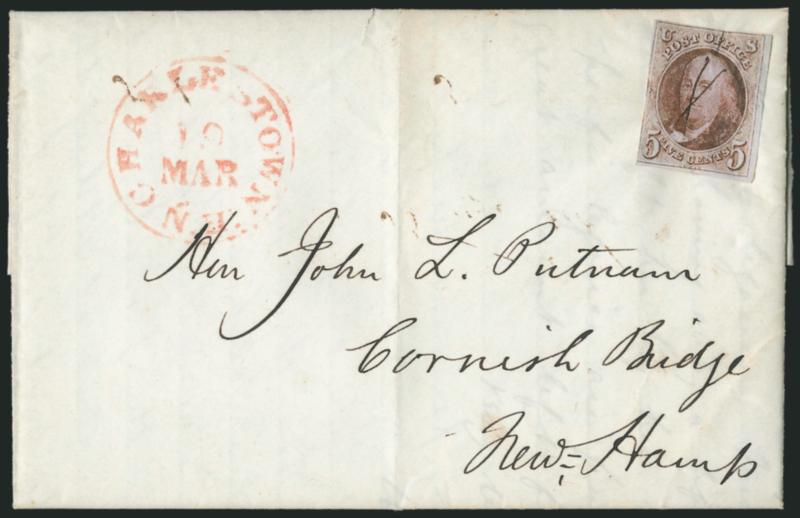 CHARLESTOWN
19
MAR
N.H.
U S
POST OFFICE
5 FIVE CENTS 5
Hon John L. Putnam
Cornish Bridge
New= Hamp